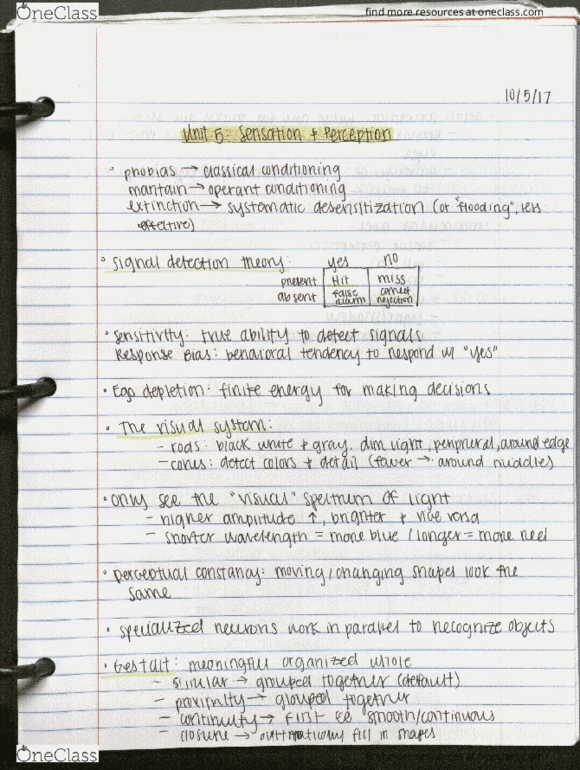 OneClass
find more resources at oneclass.com
10/5/17
Unit 5: Sensation + Perception
• phobias → classical conditioning
mantain → operant conditioning
extinction → systematic desensitization (or "flooding", less
effective)
• Signal detection theory: yes no
present Hit miss
absent false alarm correct rejection
• Sensitivity: true ability to detect signals
Response Bias: behavioral tendency to respond w/ "yes"
• Ego depletion: finite energy for making decisions
• The visual system:
- rods: black white + gray, dim light, peripheral, around edge
- cones: detect colors + detail (fewer → around middles)
• Only see the "visual" spectrum of light
- higher amplitude ↑, brighter + vice versa
- shorter wavelength = more blue / longer = more red
• Perceptual constancy: moving/changing shapes look the
same
• specialized neurons work in parallel to recognize objects
• Gestalt: meaningful organized whole
- similar → grouped together (default)
- proximity → grouped together
- continuity → First smooth/continuous
- closure → fill in shapes
OneClass
find more resources at oneclass.com